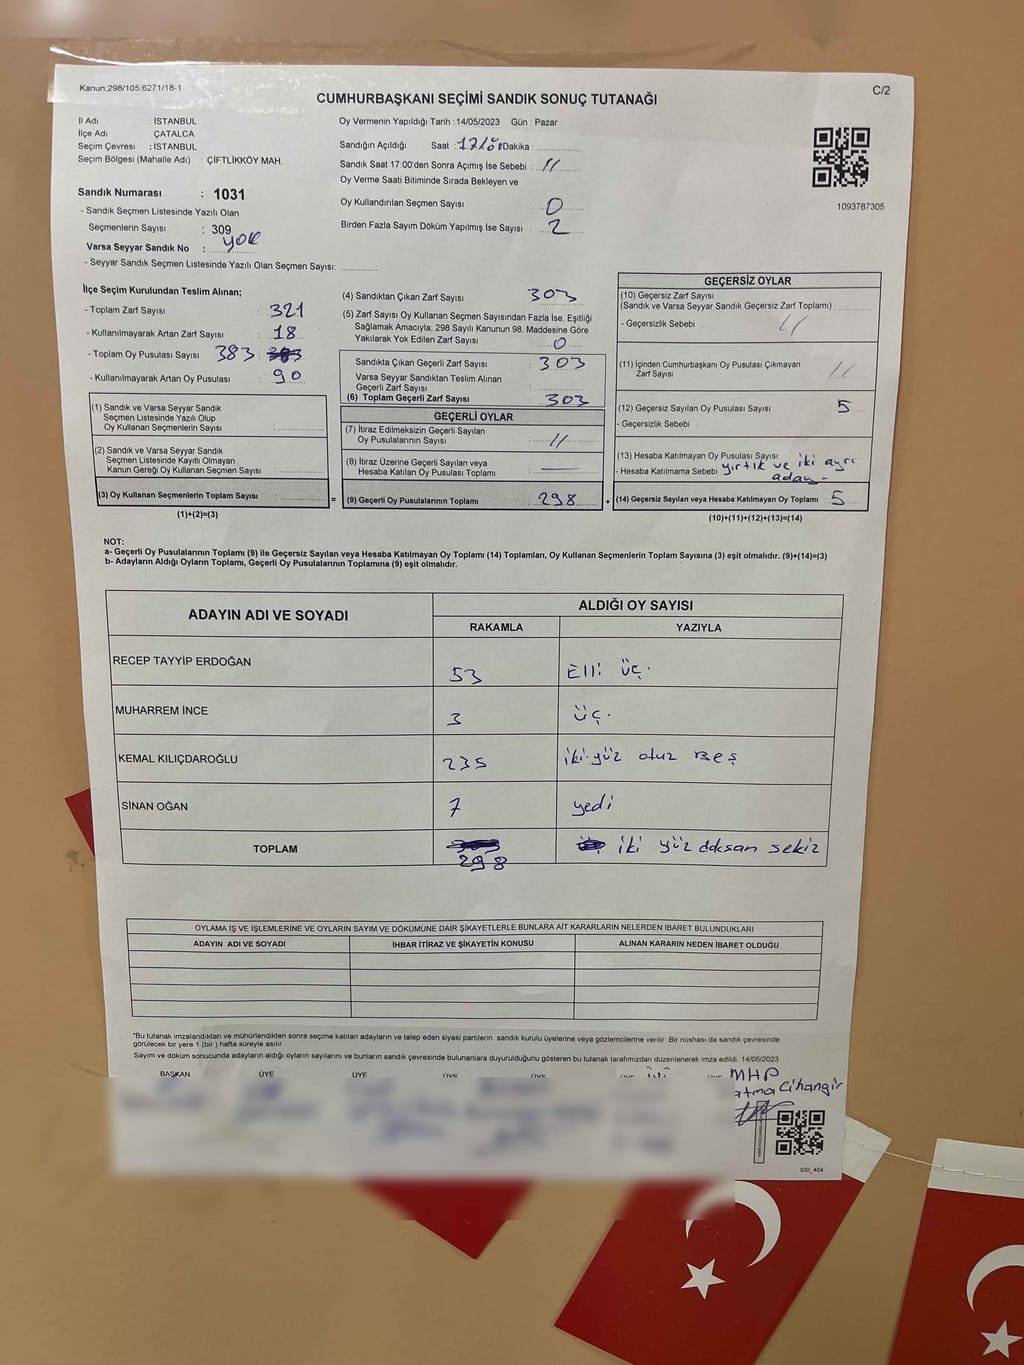 Kanun:298/105;6271/18-1
C/2
CUMHURBAŞKANI SEÇİMİ SANDIK SONUÇ TUTANAĞI
İl Adı : İSTANBUL
İlçe Adı : ÇATALCA
Seçim Çevresi : İSTANBUL
Seçim Bölgesi (Mahalle Adı) : ÇİFTLİKKÖY MAH.
Sandık Numarası : 1031
- Sandık Seçmen Listesinde Yazılı Olan
Seçmenlerin Sayısı : 309
Varsa Seyyar Sandık No : YOK
- Seyyar Sandık Seçmen Listesinde Yazılı Olan Seçmen Sayısı:
Oy Vermenin Yapıldığı Tarih :14/05/2023 Gün : Pazar
Sandığın Açıldığı Saat : Dakika :
Sandık Saat 17:00'den Sonra Açımış İse Sebebi : //
Oy Verme Saati Bitiminde Sırada Bekleyen ve
Oy Kullandırılan Seçmen Sayısı : 0
Birden Fazla Sayım Döküm Yapılmış İse Sayısı : 2
1093787305
İlçe Seçim Kurulundan Teslim Alınan;
- Toplam Zarf Sayısı : 321
- Kullanılmayarak Artan Zarf Sayısı : 18
- Toplam Oy Pusulası Sayısı 383 :
- Kullanılmayarak Artan Oy Pusulası : 90
(1) Sandık ve Varsa Seyyar Sandık
Seçmen Listesinde Yazılı Olup
Oy Kullanan Seçmenlerin Sayısı :
(2) Sandık ve Varsa Seyyar Sandık
Seçmen Listesinde Kayıtlı Olmayan
Kanun Gereği Oy Kullanan Seçmen Sayısı :
(3) Oy Kullanan Seçmenlerin Toplam Sayısı :
(1)+(2)=(3)
(4) Sandıktan Çıkan Zarf Sayısı : 303
(5) Zarf Sayısı Oy Kullanan Seçmen Sayısından Fazla İse, Eşitliği
Sağlamak Amacıyla; 298 Sayılı Kanunun 98. Maddesine Göre
Yakılarak Yok Edilen Zarf Sayısı : 0
Sandıkta Çıkan Geçerli Zarf Sayısı : 303
Varsa Seyyar Sandıktan Teslim Alınan
Geçerli Zarf Sayısı :
(6) Toplam Geçerli Zarf Sayısı : 303
GEÇERLİ OYLAR
(7) İtiraz Edilmeksizin Geçerli Sayılan
Oy Pusulalarının Sayısı : //
(8) İtiraz Üzerine Geçerli Sayılan veya
Hesaba Katılan Oy Pusulası Toplamı :
= (9) Geçerli Oy Pusulalarının Toplamı : 298 +
GEÇERSİZ OYLAR
(10) Geçersiz Zarf Sayısı
(Sandık ve Varsa Seyyar Sandık Geçersiz Zarf Toplamı) :
- Geçersizlik Sebebi : //
(11) İçinden Cumhurbaşkanı Oy Pusulası Çıkmayan
Zarf Sayısı : //
(12) Geçersiz Sayılan Oy Pusulası Sayısı : 5
- Geçersizlik Sebebi :
(13) Hesaba Katılmayan Oy Pusulası Sayısı :
- Hesaba Katılmama Sebebi : yırtık ve iki ayrı
aday-
(14) Geçersiz Sayılan veya Hesaba Katılmayan Oy Toplamı : 5
(10)+(11)+(12)+(13)=(14)
NOT:
a- Geçerli Oy Pusulalarının Toplamı (9) ile Geçersiz Sayılan veya Hesaba Katılmayan Oy Toplamı (14) Toplamları, Oy Kullanan Seçmenlerin Toplam Sayısına (3) eşit olmalıdır. (9)+(14)=(3)
b- Adayların Aldığı Oyların Toplamı, Geçerli Oy Pusulalarının Toplamına (9) eşit olmalıdır.
ADAYIN ADI VE SOYADI ALDIĞI OY SAYISI
RAKAMLA YAZIYLA
RECEP TAYYİP ERDOĞAN 53 Elli üç.
MUHARREM İNCE 3 üç.
KEMAL KILIÇDAROĞLU 235 iki yüz otuz Beş
SİNAN OĞAN 7 yedi
TOPLAM 298 iki yüz doksan sekiz
OYLAMA İŞ VE İŞLEMLERİNE VE OYLARIN SAYIM VE DÖKÜMÜNE DAİR ŞİKAYETLERLE BUNLARA AİT KARARLARIN NELERDEN İBARET BULUNDUKLARI
ADAYIN ADI VE SOYADI İHBAR İTİRAZ VE ŞİKAYETİN KONUSU ALINAN KARARIN NEDEN İBARET OLDUĞU
*Bu tutanak imzalandıktan ve mühürlendikten sonra seçime katılan adayların ve talep eden siyasi partilerin sandık kurulu üyelerine veya gözlemcilerine verilir. Bir nüshası da sandık çevresinde
görülecek bir yere 1 (bir ) hafta süreyle asılır.
Sayım ve döküm sonucunda adayların aldığı oyların sayılarını ve bunların sandık çevresinde bulunanlara duyurulduğunu gösteren bu tutanak tarafımızdan düzenlenerek imza edildi. 14/05/2023
BAŞKAN ÜYE ÜYE
MHP
atma Cihangir
SSI_404